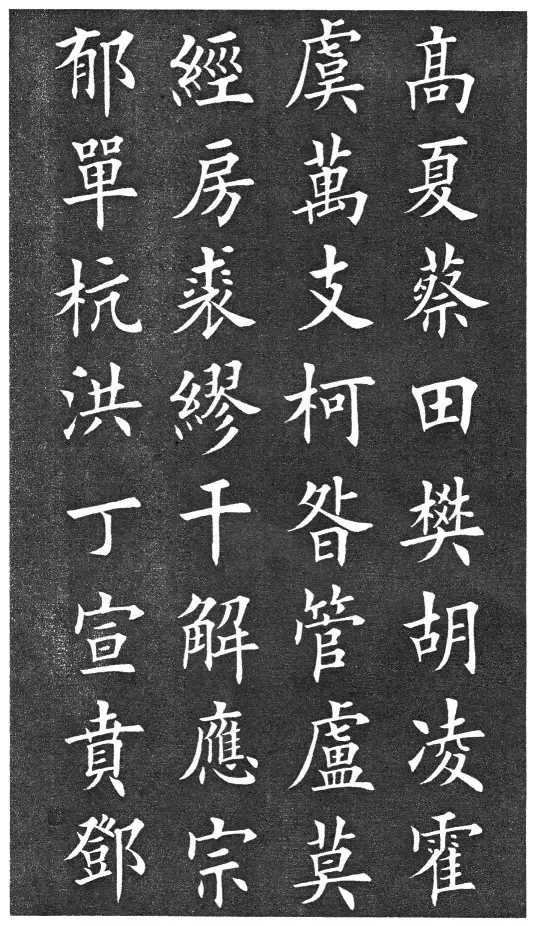 高夏蔡田樊胡凌霍
虞萬支柯昝管盧莫
經房裘繆干解應宗
郁單杭洪丁宣賁鄧